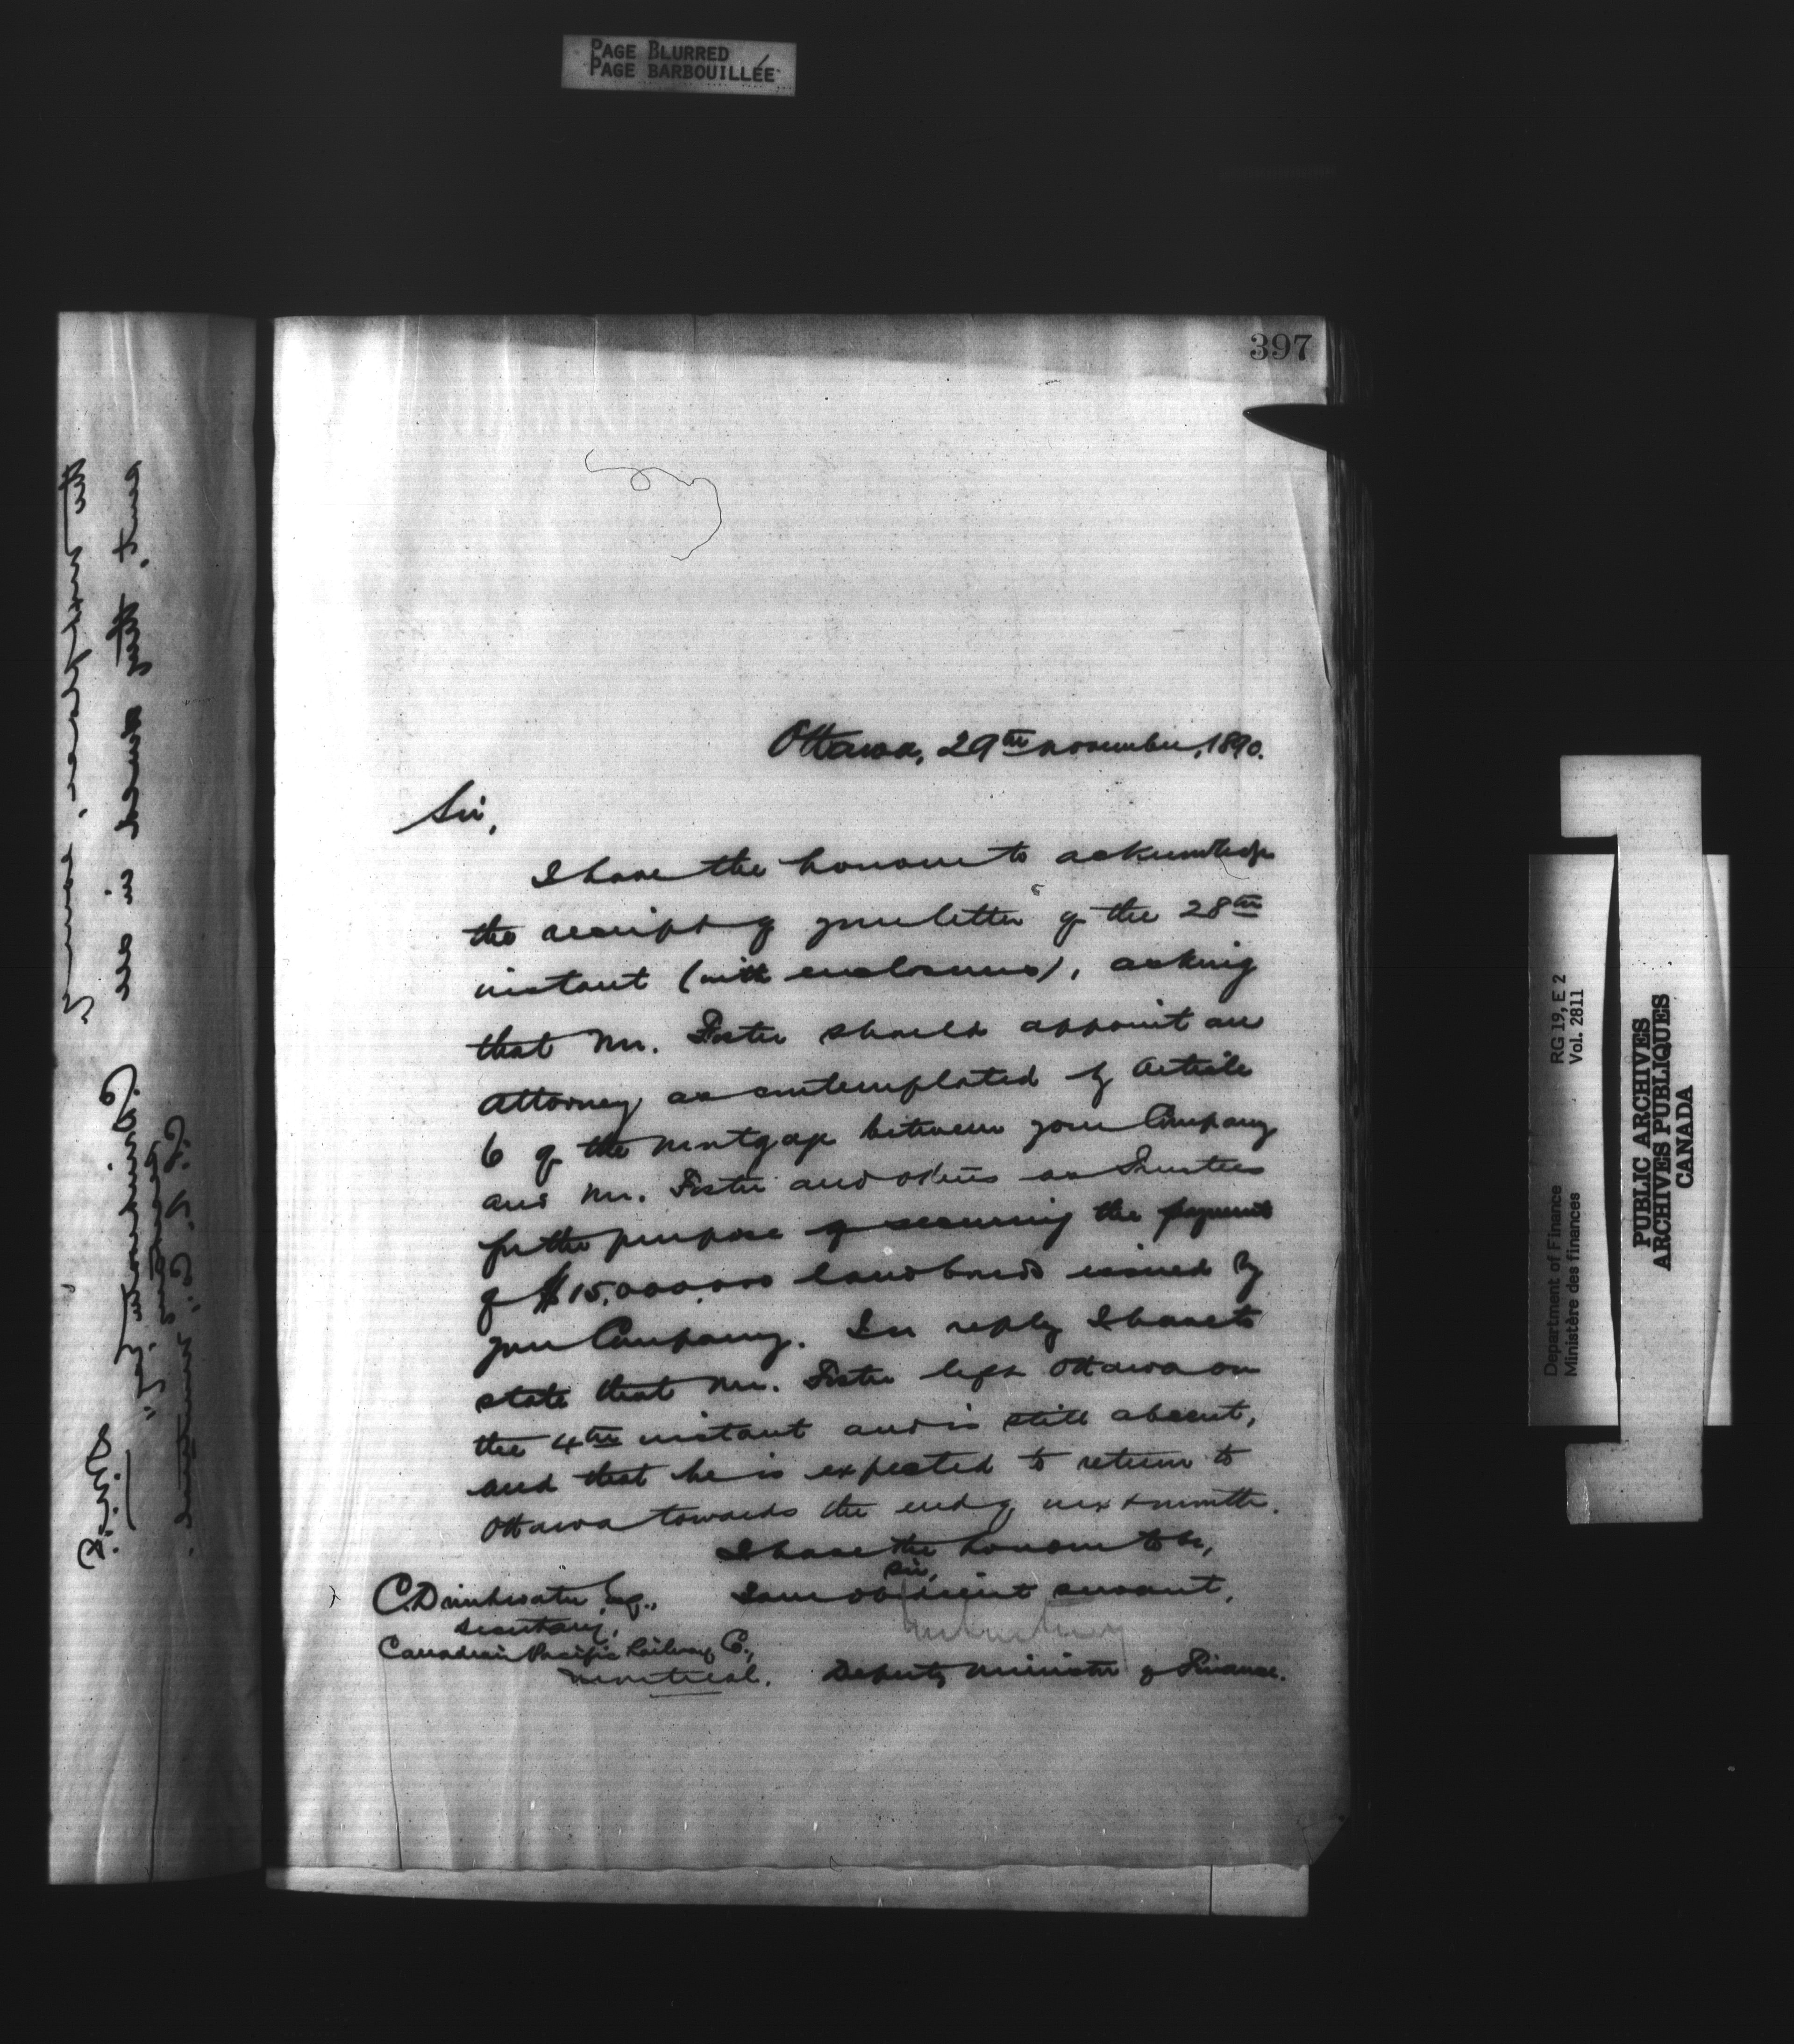 PAGE BLURRED
PAGE BARBOUILLÉE
397
Ottawa, 29th November, 1890.
Sir,
I have the honour to acknowledge
the receipt of your letter of the 28th
instant (with enclosures), asking
that Mr. Foster should appoint an
attorney as contemplated by Article
6 of the mortgage between your Company
and Mr. Foster and others as Trustees
for the purpose of securing the payment
of $15,000,000 land bonds issued by
your Company. In reply I have to
state that Mr. Foster left Ottawa on
the 4th instant and is still absent,
and that he is expected to return to
Ottawa towards the end of next month.
I have the honour to be,
Sir,
Your obedient servant,
Deputy Minister of Finance.
C. Drinkwater Esq.,
Secretary,
Canadian Pacific Railway Co.,
Montreal.
Department of Finance RG 19, E 2
Ministère des finances Vol. 2811
PUBLIC ARCHIVES
ARCHIVES PUBLIQUES
CANADA